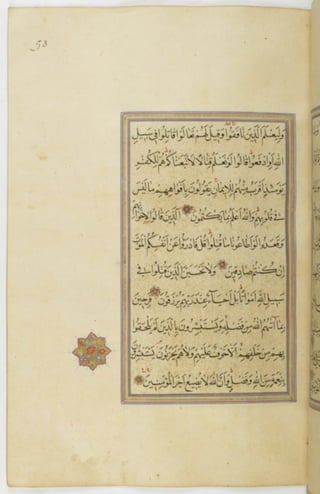 58
وَلِيَعْلَمَ الَّذِينَ نَافَقُوا وَقِيلَ لَهُمْ تَعَالَوْا قَاتِلُوا فِي سَبِيلِ
اللَّهِ أَوِ ادْفَعُوا قَالُوا لَوْ نَعْلَمُ قِتَالًا لَاتَّبَعْنَاكُمْ هُمْ لِلْكُفْرِ
يَوْمَئِذٍ أَقْرَبُ مِنْهُمْ لِلْإِيمَانِ يَقُولُونَ بِأَفْوَاهِهِمْ مَا لَيْسَ
فِي قُلُوبِهِمْ وَاللَّهُ أَعْلَمُ بِمَا يَكْتُمُونَ الَّذِينَ قَالُوا لِإِخْوَانِهِمْ
وَقَعَدُوا لَوْ أَطَاعُونَا مَا قُتِلُوا قُلْ فَادْرَؤُا عَنْ أَنْفُسِكُمُ الْمَوْتَ
إِنْ كُنْتُمْ صَادِقِينَ وَلَا تَحْسَبَنَّ الَّذِينَ قُتِلُوا فِي
سَبِيلِ اللَّهِ أَمْوَاتًا بَلْ أَحْيَاءٌ عِنْدَ رَبِّهِمْ يُرْزَقُونَ فَرِحِينَ
بِمَا آتَيهُمُ اللَّهُ مِنْ فَضْلِهِ وَيَسْتَبْشِرُونَ بِالَّذِينَ لَمْ يَلْحَقُوا
بِهِمْ مِنْ خَلْفِهِمْ أَلَّا خَوْفٌ عَلَيْهِمْ وَلَا هُمْ يَحْزَنُونَ يَسْتَبْشِرُونَ
بِنِعْمَةٍ مِنَ اللَّهِ وَفَضْلٍ وَأَنَّ اللَّهَ لَا يُضِيعُ أَجْرَ الْمُؤْمِنِينَ